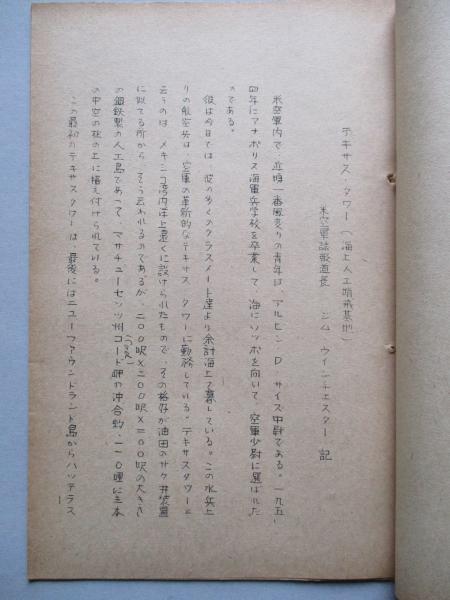 テキサス・タワー（海上人工哨戒基地）
米空軍誌報道長　ジム　ウインチェスター　記
米空軍内で、近頃一番風変りの青年は、アルビン・D・サイズ中尉である。一九五
四年にアナポリス海軍兵学校を卒業して、海にソッポを向いて、空軍少尉に選ばれた
のである。
彼は今日では、彼の多くのクラスメート達より余計海上で暮している。この水兵上
りの航空兵は、空軍の革新的なテキサス　タワーに勤務している。テキサスタワーと
云うのは、メキシコ湾内海上遠くに設けられたもので、その格好が油田のサク井装置
に似てる所から、そう云われるのであるが、二〇〇呎×二〇〇呎×二〇呎の大きさ
の鋼鉄製の人工島であって、マサチューセッツ州コード岬の沖合約、一一〇哩に三本
の中空の柱の上に据え付けられている。
この最初のテキサスタワーは、最後にはニューファウンドランド島からハッテラス